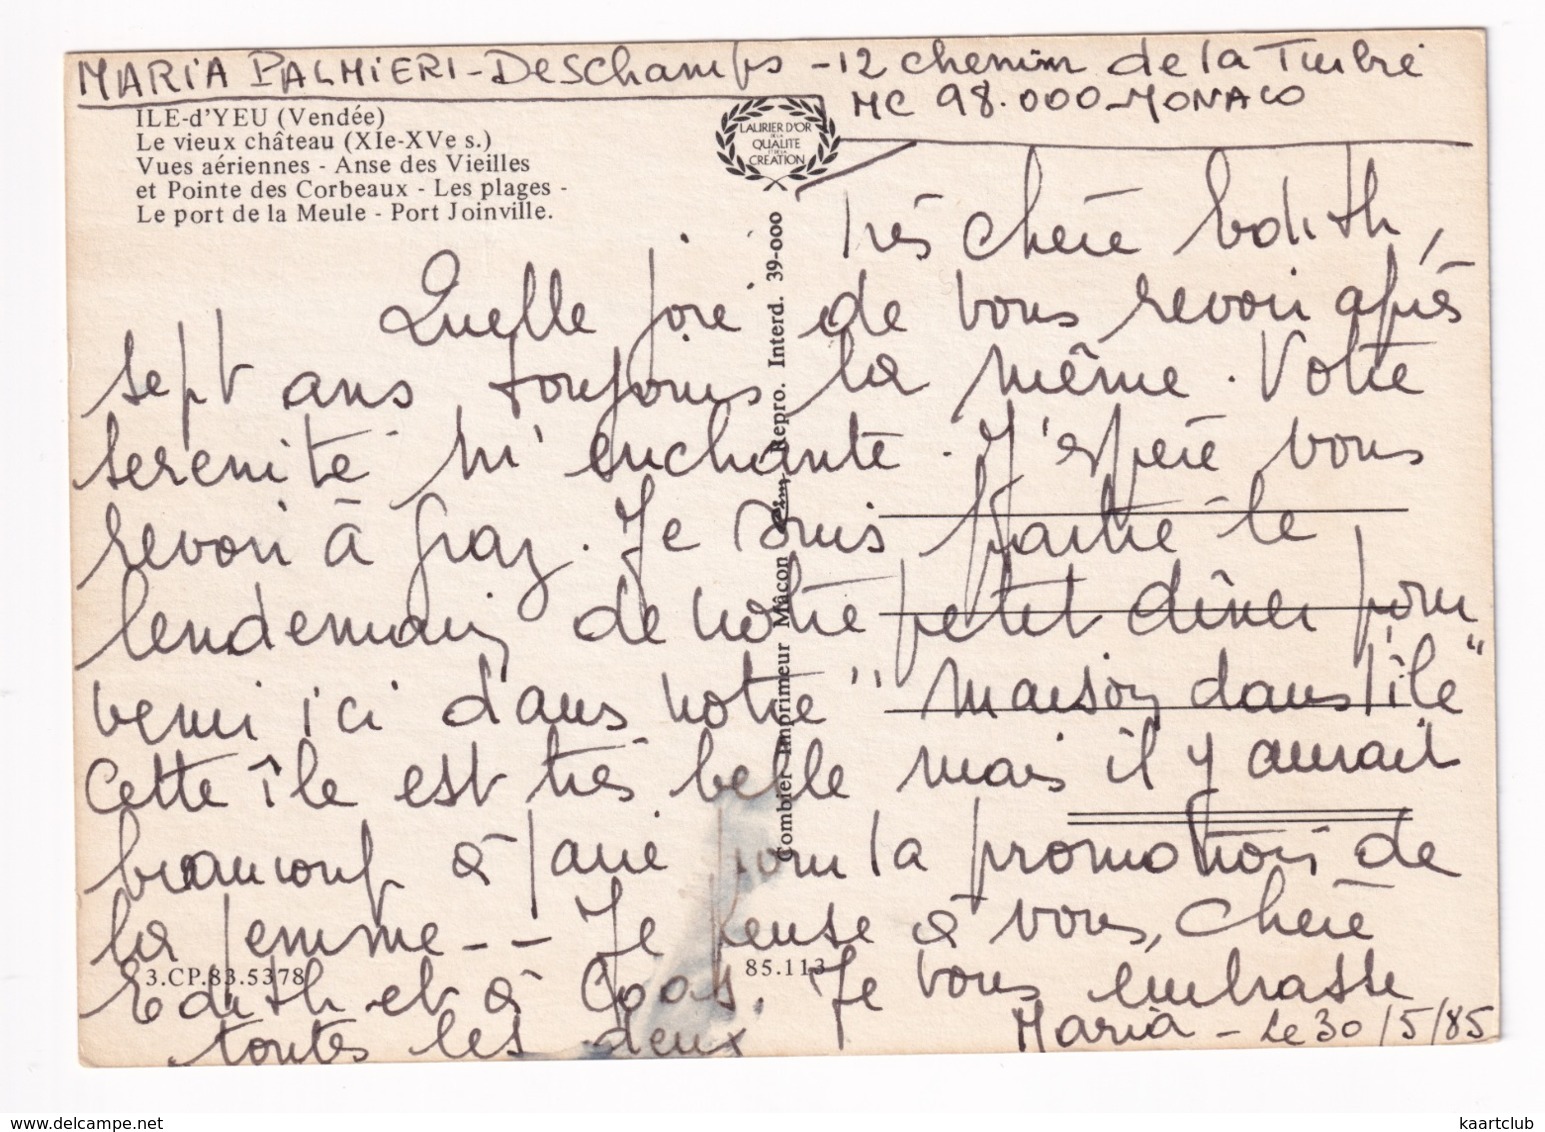 MARIA PALMIERI-Deschamps - 12 chemin de la Turbie
MC 98.000-MONACO
ILE-d'YEU (Vendée)
Le vieux château (XIe-XVe s.)
Vues aériennes - Anse des Vieilles
et Pointe des Corbeaux - Les plages -
Le port de la Meule - Port Joinville.
LAURIER D'OR
DE LA
QUALITÉ
ET DE LA
CRÉATION
Combier Imprimeur Mâcon Repro. Interd. 39-000
Très chère Edith,
Quelle joie de vous revoir après
sept ans toujours la même. Votre
serenité m'enchante. J'espère vous
revoir à Graz. Je suis partie le
lendemain de notre petit dîner pour
venir ici dans notre "maison dans l'île"
Cette île est très belle mais il y aurait
beaucoup à faire pour la promotion de
la femme-- Je pense à vous, Chère
Edith et à . Je vous embrasse
toutes les deux
Maria - Le 30/5/85
3.CP.83.5378
85.113
www.delcampe.net
kaartclub